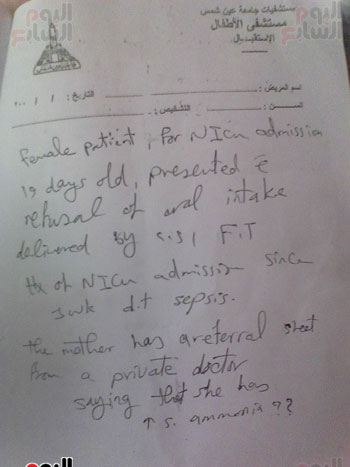 اليوم السابع
مستشفيات جامعة عين شمس
مستشفى الأطفال
الاستقبال
اسم المريض: التاريخ: / / ٢٠٠
السن: التشخيص:
female patient, for NICU admission
19 days old, presented c̄
refusal of oral intake
delivered by C.S, F.T
Hx of NICU admission since
1wk d.t sepsis.
the mother has a referral sheet
from a private doctor
saying that she has
↑ s. ammonia ??
اليوم